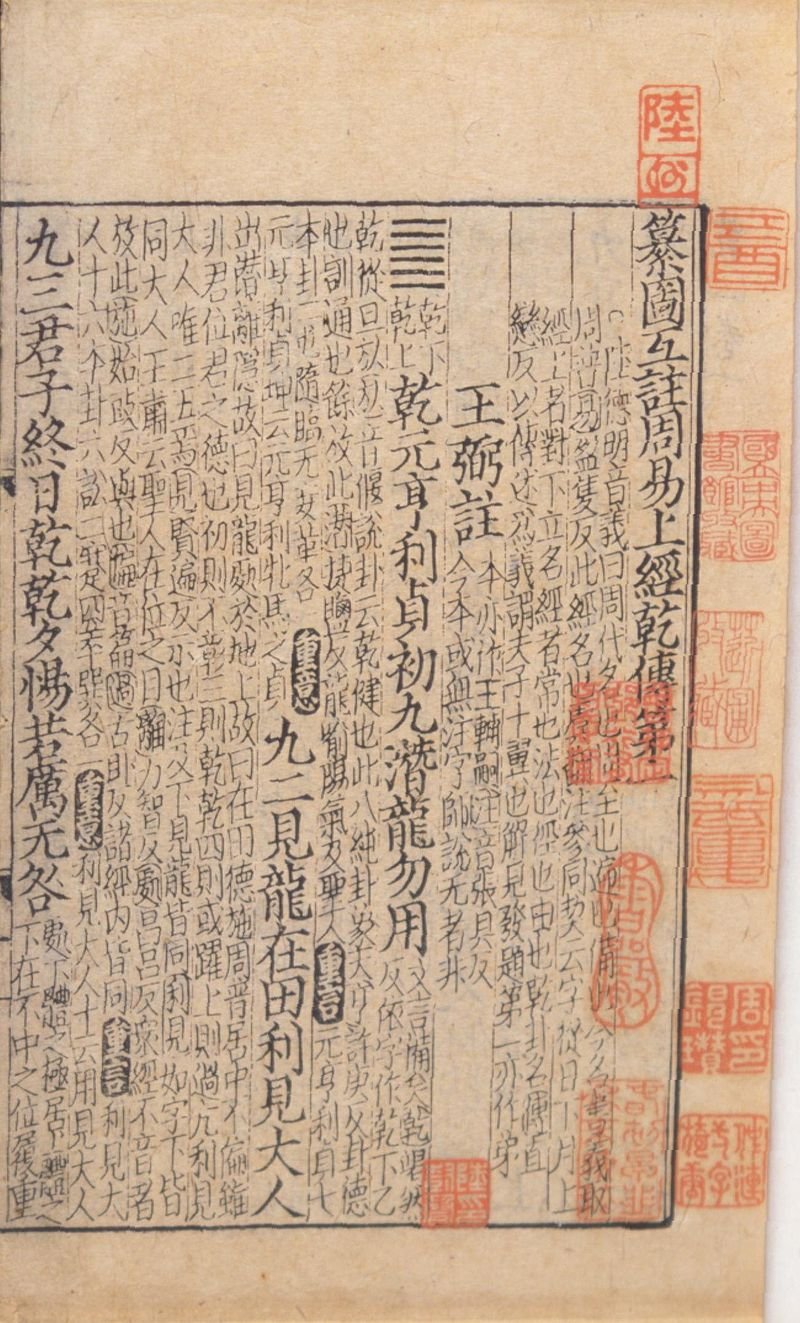 纂圖互註周易上經乾傳第一
〇陸德明音義曰周代名也周至也遍也備也今名書義取
周普易盈隻反此經名也虞翻注參同契云字從日下月上
經上者對下立名經者常也法也徑也由也乾卦名傳直
戀反以傳述爲義謂夫子十翼也解見發題第一亦作弟
王弼註 本亦作王輔嗣注音張具反
今本或無注字師說无者非
乾下
乾上 乾元亨利貞初九潛龍勿用 文言備矣乾竭然
反依字作乾下乙
乾從旦㫃㫃音偃說卦云乾健也此八純卦象天亨許庚反卦德
也訓通也餘放此潛捷鹽反龍喻陽氣及聖人 重言 元亨利貞七
本卦二屯隨臨无妄革各一 重意
元亨利貞坤云元亨利牝馬之貞 九二見龍在田利見大人
出潛離隱故曰見龍處於地上故曰在田德施周普居中不偏雖
非君位君之德也初則不彰三則乾乾四則或躍上則過亢利見
大人唯二五焉見賢遍反示也注及下見龍皆同利見如字下皆
同大人王肅云聖人在位之目離力智反處昌呂反衆經不音者
放此施始豉反與也偏音篇過古臥反諸經內皆同 重言 利見大
人十六本卦六訟二蹇四萃巽各一 重意 利見大人十云用見大人
九三君子終日乾乾夕惕若厲无咎 處下體之極居上體之
下在不中之位履重